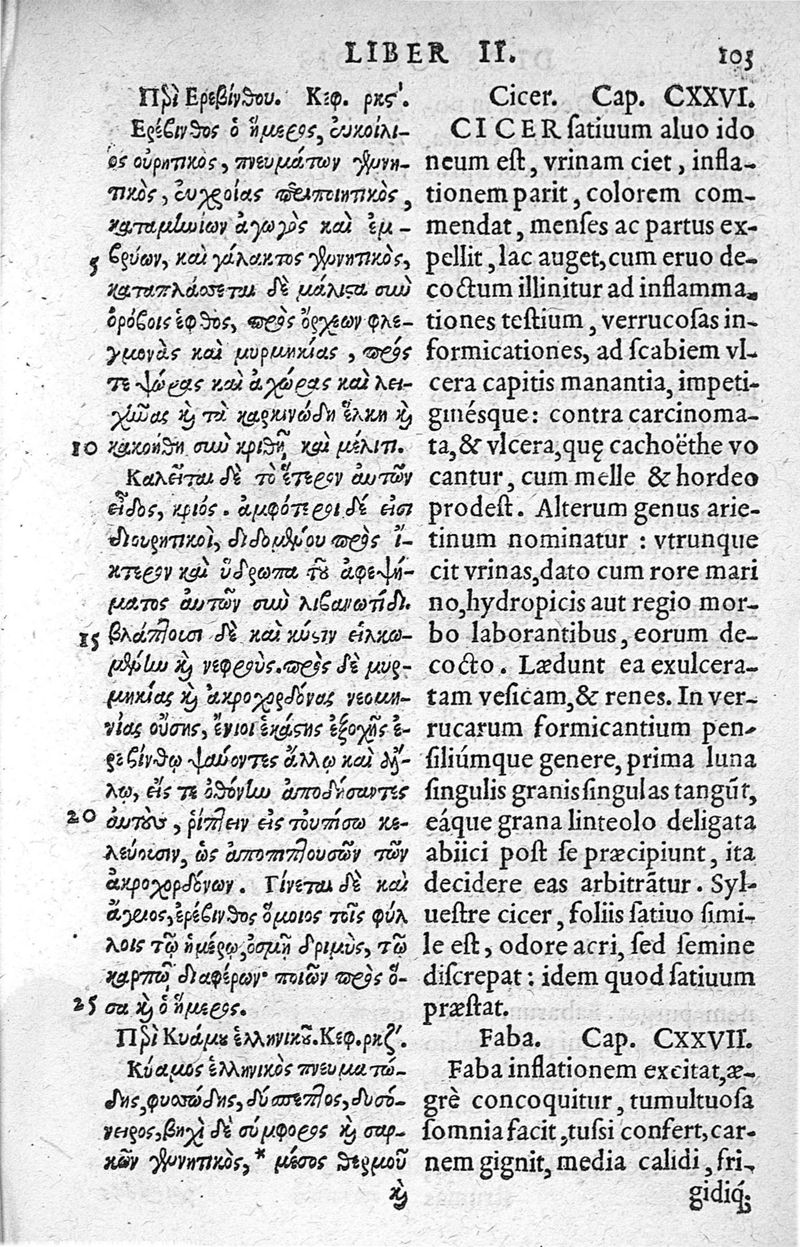 LIBER II. 103
Περὶ Ερεβίνθου. Κεφ. ρκϛʹ.
Ερέβινθος ὁ ἥμερος, εὐκοίλι-
ος οὐρητικὸς, πνευμάτων γεννη-
τικὸς, εὐχροίας περιποιητικὸς,
καταμηνίων ἀγωγὸς καὶ ἐμ-
5 βρύων, καὶ γάλακτος γεννητικὸς,
καταπλάσσεται δὲ μάλιστα σὺν
ὀρόβοις ἑφθὸς, πρὸς ὄρχεων φλε-
γμονὰς καὶ μυρμηκίας, πρός
τε ψώρας καὶ ἀχώρας καὶ λει-
χῆνας καὶ τὰ καρκινώδη ἕλκη καὶ
10 κακοήθη σὺν κριθῇ καὶ μέλιτι.
Καλεῖται δὲ τὸ ἕτερον αὐτῶν
εἶδος, κριός. ἀμφότεροι δέ εἰσι
διουρητικοὶ, διδομένου πρὸς ἴ-
κτερον καὶ ὕδρωπα τοῦ ἀφεψή-
ματος αὐτῶν σὺν λιβανωτίδι.
15 βλάπτουσι δὲ καὶ κύστιν εἱλκω-
μένην καὶ νεφρούς. πρὸς δὲ μυρ-
μηκίας καὶ ἀκροχορδόνας νεομη-
νίας οὔσης, ἔνιοι ἑκάστης ἐξοχῆς ἐ-
ρεβίνθῳ ψαύοντες ἄλλῳ καὶ ἄλ-
λῳ, εἴς τε ὀθόνιον ἀποδήσαντες
20 αὐτοὺς, ῥίπτειν εἰς τοὐπίσω κε-
λεύουσιν, ὡς ἀποπιπτουσῶν τῶν
ἀκροχορδόνων. Γίνεται δὲ καὶ
ἄγριος, ἐρέβινθος ὅμοιος τοῖς φύλ
λοις τῷ ἡμέρῳ, ὀσμῇ δριμὺς, τῷ
καρπῷ διαφέρων· ποιῶν πρὸς ὅ-
25 σα καὶ ὁ ἥμερος.
Περὶ Κυάμου ἑλληνικοῦ. Κεφ. ρκζʹ.
Κύαμος ἑλληνικὸς πνευματώ-
δης, φυσώδης, δύσπεπτος, δυσό-
νειρος, βηχὶ δὲ σύμφορος καὶ σαρ-
κῶν γεννητικὸς, * μέσος θερμοῦ
καὶ
Cicer. Cap. CXXVI.
CICER satiuum aluo ido
neum est, vrinam ciet, infla-
tionem parit, colorem com-
mendat, menses ac partus ex-
pellit, lac auget, cum eruo de-
coctum illinitur ad inflamma-
tiones testium, verrucosas in-
formicationes, ad scabiem vl-
cera capitis manantia, impeti-
ginésque: contra carcinoma-
ta, & vlcera, quę cachoëthe vo
cantur, cum melle & hordeo
prodest. Alterum genus arie-
tinum nominatur: vtrunque
cit vrinas, dato cum rore mari
no, hydropicis aut regio mor-
bo laborantibus, eorum de-
cocto. Lædunt ea exulcera-
tam vesicam, & renes. In ver-
rucarum formicantium pen-
siliúmque genere, prima luna
singulis granis singulas tangūt,
eáque grana linteolo deligata
abiici post se præcipiunt, ita
decidere eas arbitrātur. Syl-
uestre cicer, foliis satiuo simi-
le est, odore acri, sed semine
discrepat: idem quod satiuum
præstat.
Faba. Cap. CXXVII.
Faba inflationem excitat, æ-
grè concoquitur, tumultuosa
somnia facit, tussi confert, car-
nem gignit, media calidi, fri-
gidiq́;